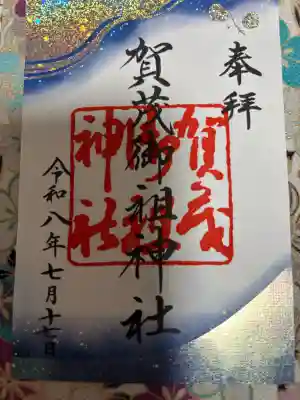 奉拝
賀茂御祖神社
令和八年七月十七日
賀茂
神社